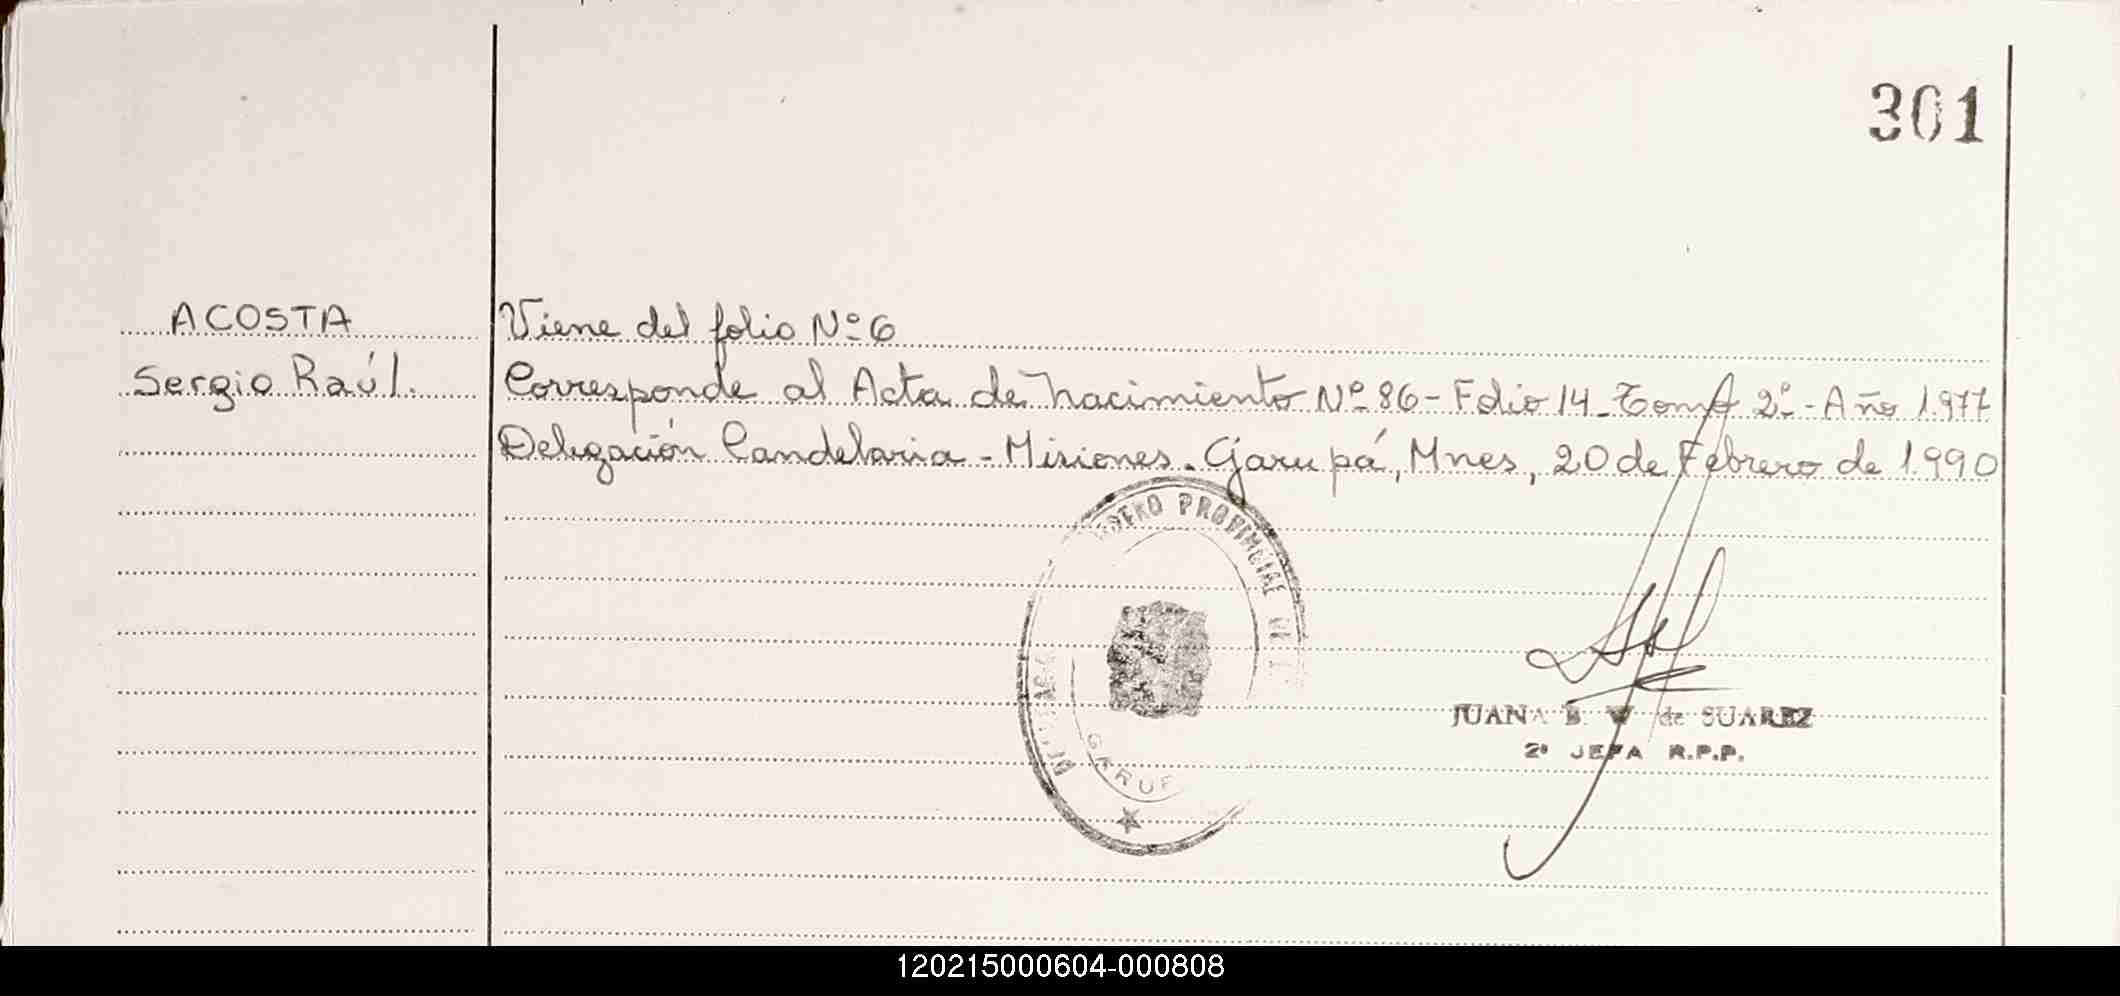 301
ACOSTA
Sergio Raúl.
Viene del folio Nº 6
Corresponde al Acta de Nacimiento Nº 86 - Folio 14 - Tomo 2º - Año 1.977
Delegación Candelaria - Misiones. Garupá, Mnes, 20 de Febrero de 1.990
PROVINCIAL
JUANA E. V. de SUAREZ
2ª JEFA R.P.P.
120215000604-000808